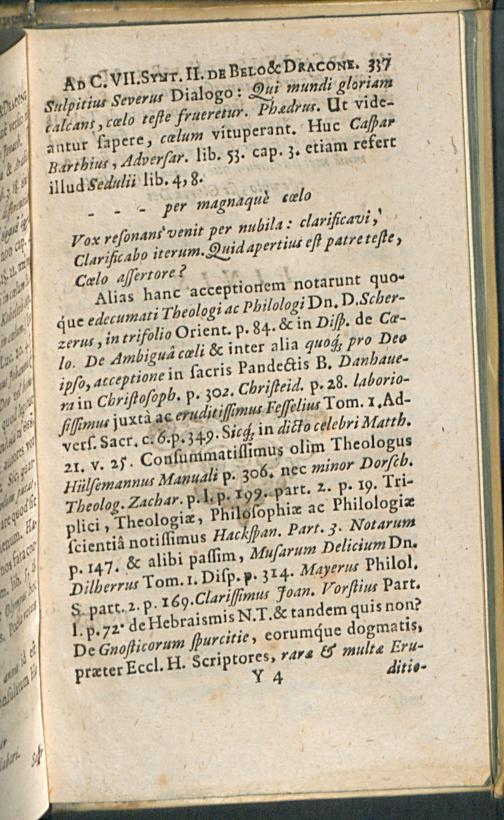 AD C. VII. SYNT. II. DE BELO & DRACONE. 337
Sulpitius Severus Dialogo: Qui mundi gloriam
calcans, cœlo teste frueretur. Phædrus. Ut vide-
antur sapere, cœlum vituperant. Huc Caspar
Barthius, Adversar. lib. 53. cap. 3. etiam refert
illud Sedulii lib. 4, 8.
- - - per magnaquè cœlo
Vox resonans venit per nubila: clarificavi,
Clarificabo iterum. Quid apertius est patre teste,
Cœlo assertore?
Alias hanc acceptionem notarunt quo-
que edecumati Theologi ac Philologi Dn. D. Scher-
zerus, in trifolio Orient. p. 84. & in Disp. de Cœ-
lo. De Ambiguâ cœli & inter alia quoq; pro Deo
ipso, acceptione in sacris Pandectis B. Danhaue-
ra in Christosoph. p. 302. Christeid. p. 28. laborio-
sissimus juxtà ac eruditissimus Fesselius Tom. 1. Ad-
vers. Sacr. c. 6. p. 349. Sicq; in dicto celebri Matth.
21. v. 25. Consummatissimus olim Theologus
Hülsemannus Manuali p. 306. nec minor Dorsch.
Theolog. Zachar. p. I. p. 199. part. 2. p. 19. Tri-
plici, Theologiæ, Philosophiæ ac Philologiæ
scientiâ notissimus Hackspan. Part. 3. Notarum
p. 147. & alibi passim, Musarum Delicium Dn.
Dilherrus Tom. 1. Disp. p. 314. Mayerus Philol.
S. part. 2. p. 169. Clarissimus Joan. Vorstius Part.
I. p. 72. de Hebraismis N.T. & tandem quis non?
De Gnosticorum spurcitie, eorumque dogmatis,
præter Eccl. H. Scriptores, raræ & multæ Eru-
Y 4 ditio-